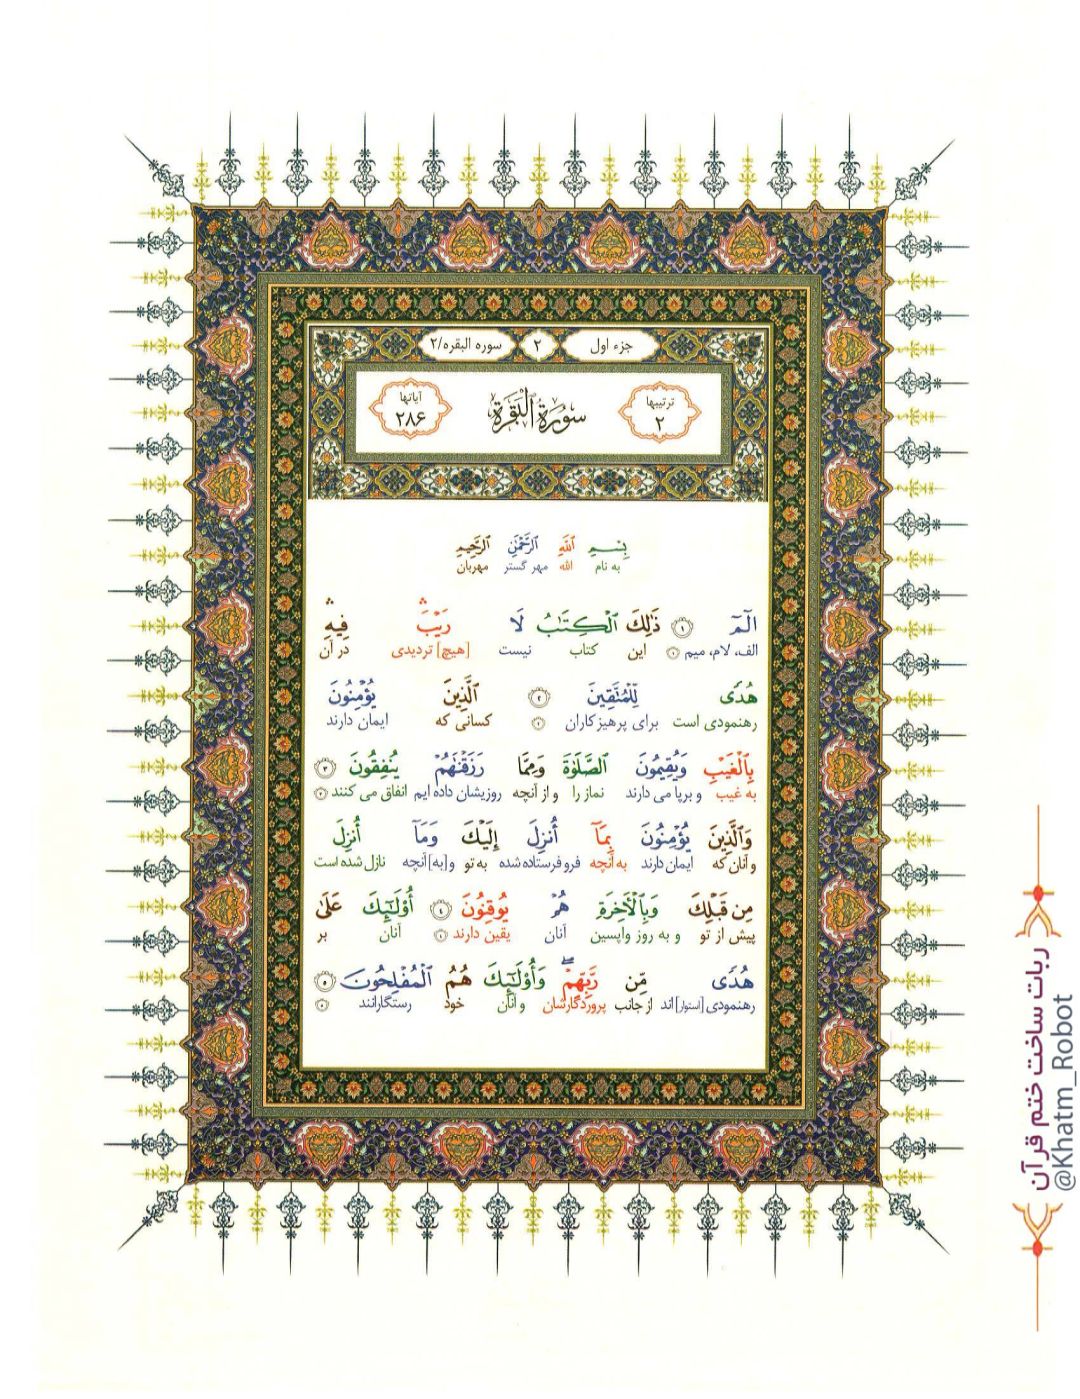 جزء اول
۲
سوره البقره/۲
ترتیبها
۲
سُورَةُ الْبَقَرَةِ
آیاتها
۲۸۶
بِسْمِ ٱللَّهِ ٱلرَّحْمَٰنِ ٱلرَّحِيمِ
به نام الله مهر گستر مهربان
الٓمٓ ۱ ذَٰلِكَ ٱلْكِتَٰبُ لَا رَيْبَ ۛ فِيهِ ۛ
الف، لام، میم ۱ این کتاب نیست [هیچ] تردیدی در آن
هُدًى لِّلْمُتَّقِينَ ۲ ٱلَّذِينَ يُؤْمِنُونَ
رهنمودی است برای پرهیزکاران ۲ کسانی که ایمان دارند
بِٱلْغَيْبِ وَيُقِيمُونَ ٱلصَّلَوٰةَ وَمِمَّا رَزَقْنَٰهُمْ يُنفِقُونَ ۳
به غیب و برپا می دارند نماز را و از آنچه روزیشان داده ایم انفاق می کنند ۳
وَٱلَّذِينَ يُؤْمِنُونَ بِمَآ أُنزِلَ إِلَيْكَ وَمَآ أُنزِلَ
و آنان که ایمان دارند به آنچه فرو فرستاده شده به تو و [به] آنچه نازل شده است
مِن قَبْلِكَ وَبِٱلْأَخِرَةِ هُمْ يُوقِنُونَ ٤ أُو۟لَٰٓئِكَ عَلَىٰ
پیش از تو و به روز واپسین آنان یقین دارند ٤ آنان بر
هُدًى مِّن رَّبِّهِمْ ۖ وَأُو۟لَٰٓئِكَ هُمُ ٱلْمُفْلِحُونَ ۵
رهنمودی [استوار] اند از جانب پروردگارشان و آنان خود رستگارانند ۵
ربات ساخت ختم قرآن
@Khatm_Robot